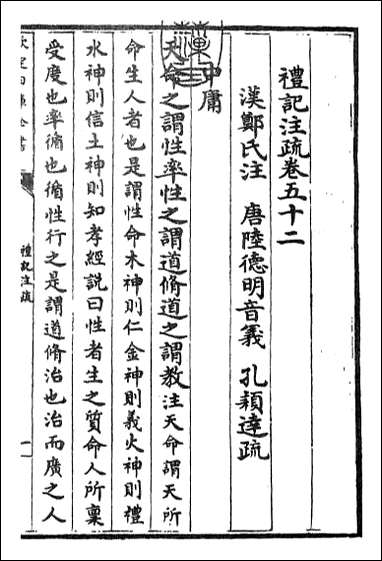 禮記注疏卷五十二
漢鄭氏注 唐陸德明音義 孔穎達疏
中庸
天命之謂性率性之謂道脩道之謂教注天命謂天所
命生人者也是謂性命木神則仁金神則義火神則禮
水神則信土神則知孝經說曰性者生之質命人所稟
受度也率循也循性行之是謂道脩治也治而廣之人
禮記注疏
一